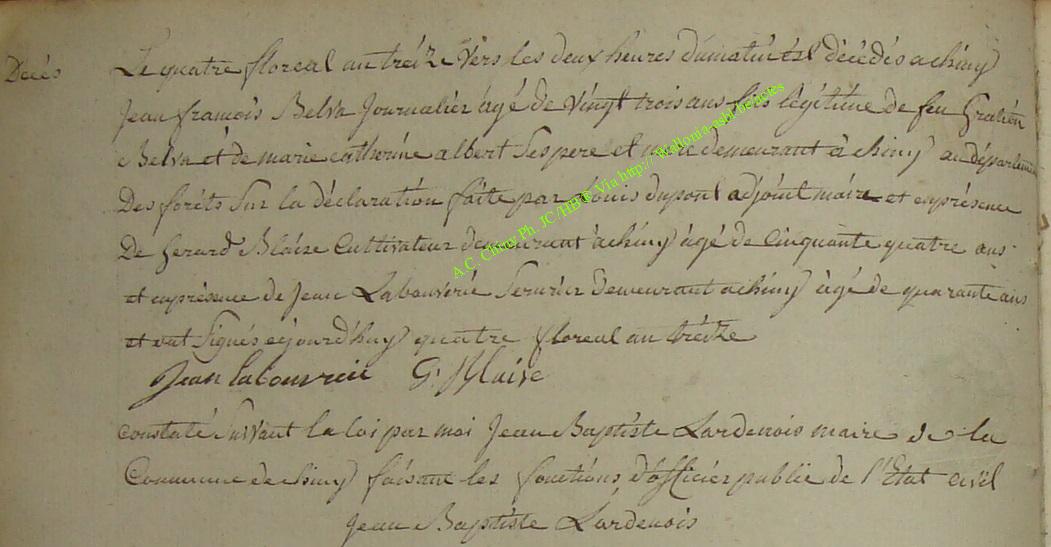 Décès
Le quatre floreal an treize vers les deux heures dumatin est décédés achiny
Jean françois Belva Journalier âgé de vingt trois ans fils légitime de feu Gratien
Belva et de marie catherine albert Ses pere et mere demeurant à chiny au département
Des forêts Sur la déclaration faite par Louis dupont adjoint maire et en présence
De Gerard Blaise Cultivateur demeurant achiny âgé de Cinquante quatre ans
et enprésence de Jean Labouverie Serurier Demeurant achiny âgé de quarante ans
et ont Signés cejourd'huy quatre floreal an treize
Jean labouverie G. Blaise
constaté Suivant la loi par moi Jean Baptiste Lardenois maire de la
Commune de chiny faisant les fonctions d'officier public de l'Etat civil
Jean Baptiste Lardenois
A.C. Chiny Ph. JC/HB © Via http:// Wallonia-asbl.be/actes